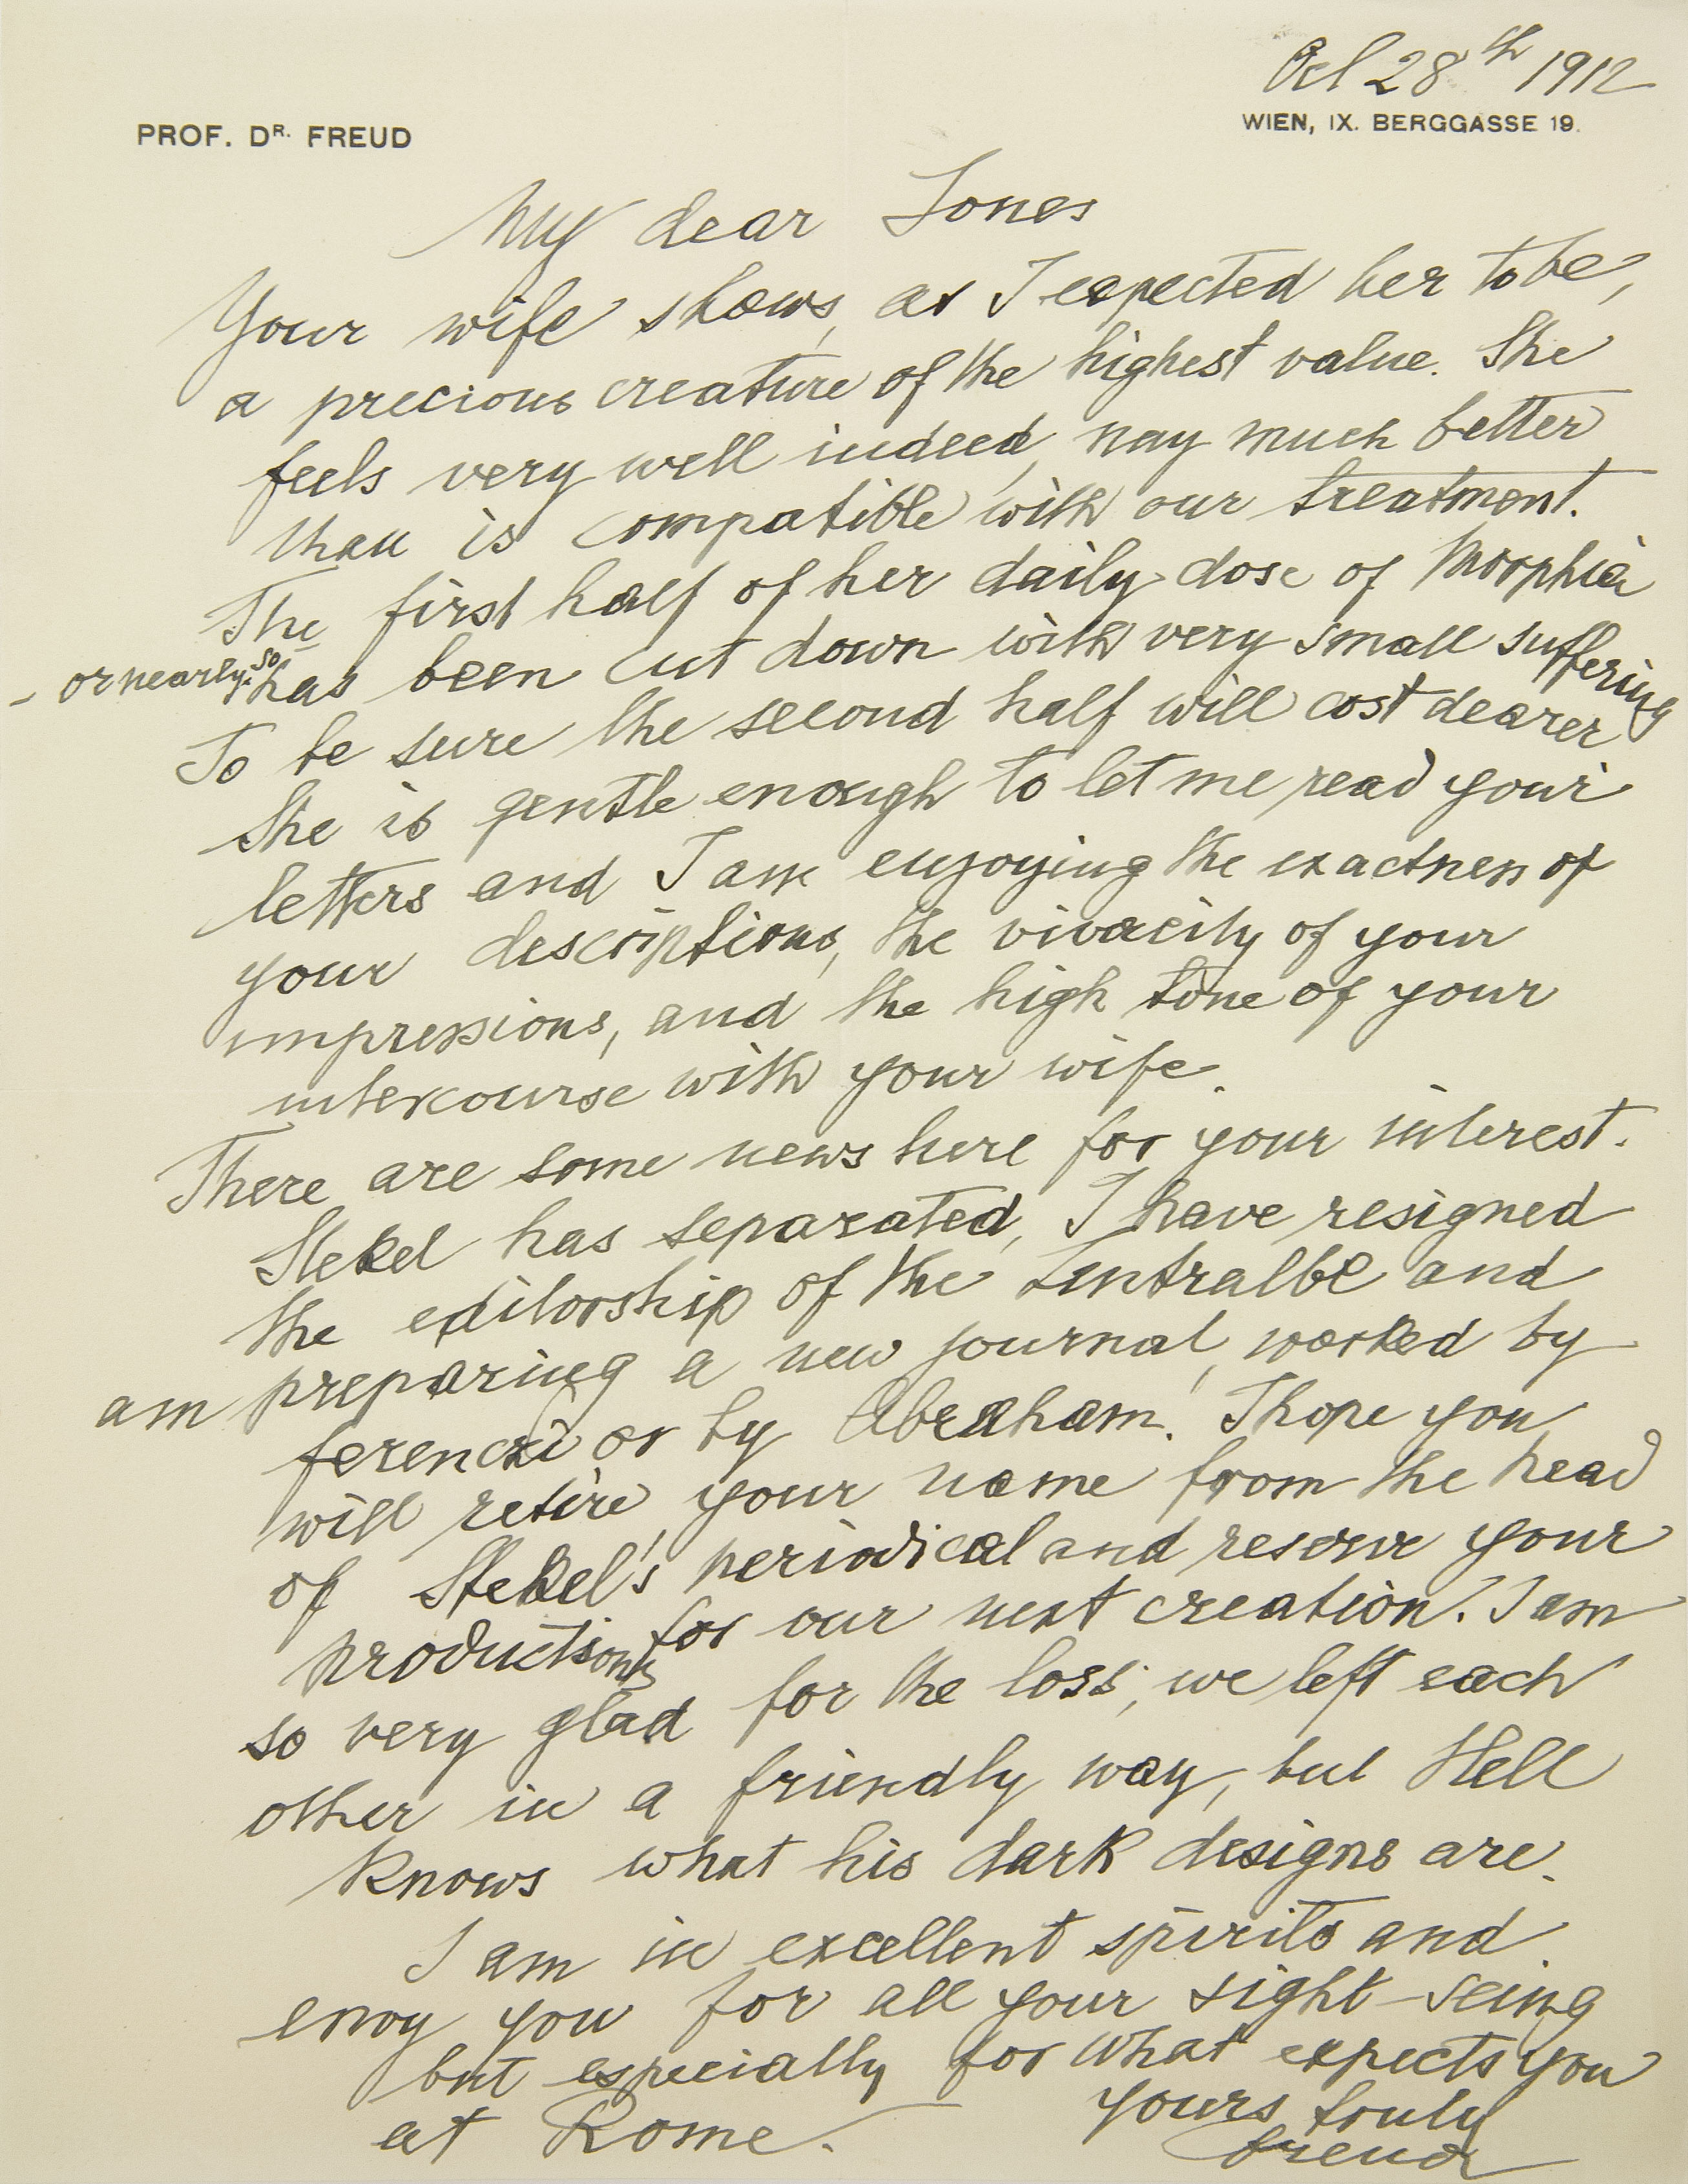 Oct 28th 1912
PROF. DR. FREUD
WIEN, IX. BERGGASSE 19.
My dear Jones
Your wife shows, as I expected her to be,
a precious creature of the highest value. She
feels very well indeed, nay much better
than is compatible with our treatment.
The first half of her daily dose of Morphia
- or nearly so - has been cut down with very small suffering
To be sure the second half will cost dearer
She is gentle enough to let me read your
letters and I am enjoying the exactness of
your descriptions, the vivacity of your
impressions, and the high tone of your
intercourse with your wife.
There are some news here for your interest.
Stekel has separated, I have resigned
the editorship of the Zentralbl and
am preparing a new journal, worked by
ferenczi or by Abraham. I hope you
will retire your name from the head
of Stekel's periodical and reserve your
productions for our next creation. I am
so very glad for the loss; we left each
other in a friendly way, but Hell
knows what his dark designs are.
I am in excellent spirits and
envoy you for all your sight-seing
but especially for what expects you
at Rome.
yours truly
Freud